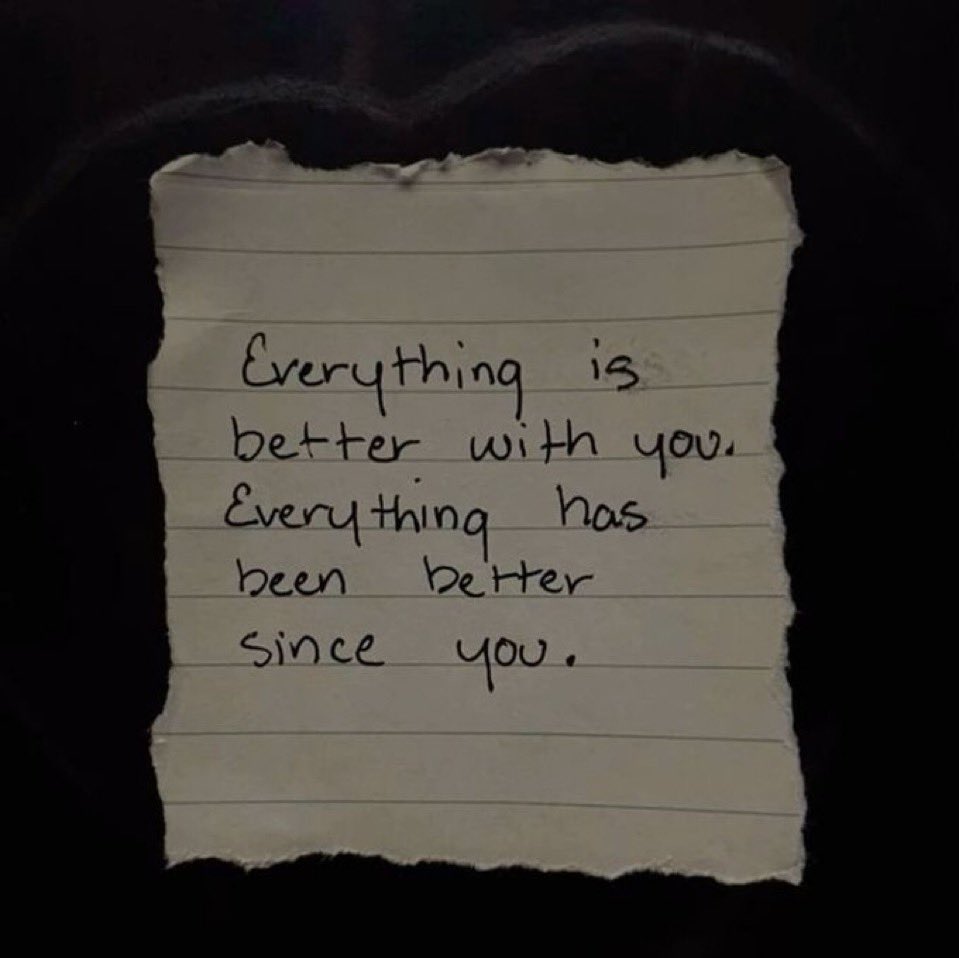 Everything is
better with you.
Everything has
been better
since you.